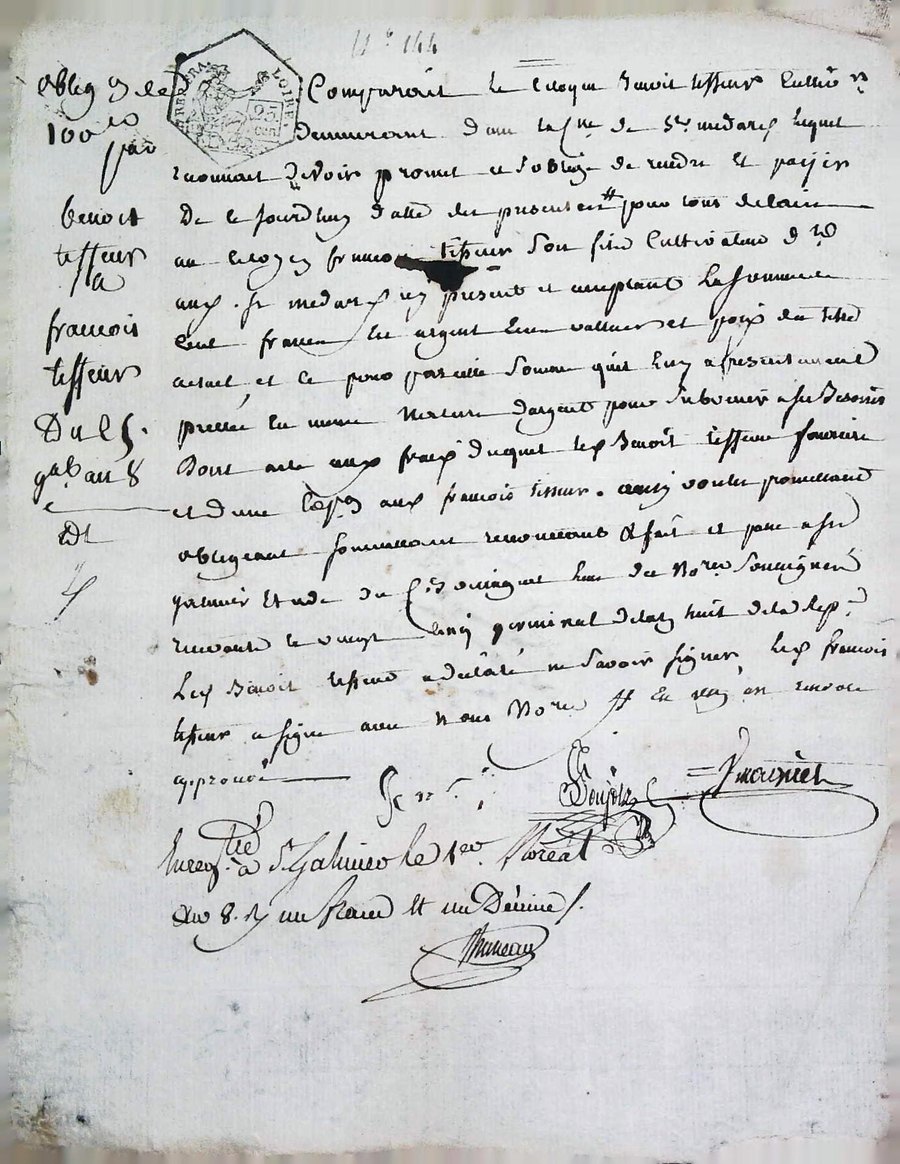 N° 144
REP. FRA. LOIRE
25 cent
oblig on de
100 fr
par
benoit
tisseur
a
francois
tisseur
Du 25
gal an 8
Comparait le Citoyen Benoit tisseur Cultiv
demeurant dans la Cne de St medard lequel
reconnait devoir promet et s'oblige de rendre et payer
De ce jourdhuy datte des presentes pour tous delais
au Citoyen francois tisseur son fils Cultivateur
aux. St medard present et acceptant la somme de
Cent francs en argent
actuel, et ce pour pareille somme qu'il luy a presentement
prettée en meme nature d'argent pour subvenir a ses Besoins
Dont acte aux fraix duquel led Benoit tisseur
et d'une aux francois tisseur. ainsi voulu promettant
obligeant soumettant renoncant & fait et passé a St
galmier Etude du Cen l'un des Nores Soussignés
recevant le vingt cinq germinal de lan huit de la Rep.
Led Benoit tisseur a declaré ne savoir signer, led francois
tisseur a signé avec Nous Nores
approuvé
Enregtré à St Galmier le 1er floréal
an 8. R un franc et un Décime